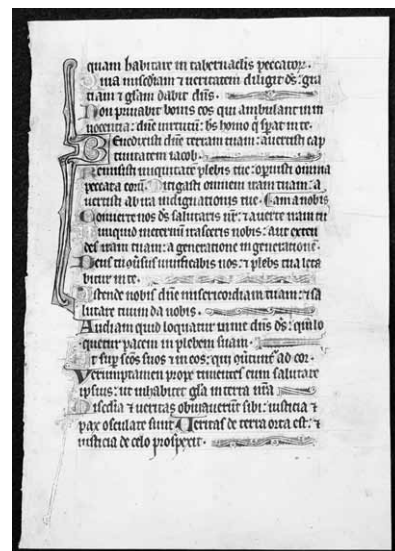 quam habitare in tabernaclis peccator.
Quia misc̄diam ⁊ veritatem diligit dſ: gra
tiam ⁊ glām dabit dn̄s.
Non privabit bonis eos qui ambulant in in
nocentia: dn̄e virtutū: bſ homo q̄ ſꝑat in te.
Benedixisti dn̄e terram tuam: avertisti cap
tivitatem iacob.
Remisisti iniquitatē plebis tue: operuisti omnia
peccata eorū. Mitigasti omnem iram tuam: a
vertisti ab ira indignationis tue.
Converte nos dſ salutaris nr̄: ⁊ averte iram tu
am a nobis
Nunquid in eternū irasceris nobis: aut exten
des iram tuam: a generatione in generationē.
Deus tu ūsus vivificabis nos: ⁊ plebs tua leta
bitur in te.
Ostende nobis dn̄e misericordiam tuam: ⁊ sa
lutare tuum da nobis.
Audiam quid loquatur in me dn̄s dſ: qm̄ lo
quetur pacem in plebem suam.
Et sup scōs suos ⁊ in eos: qui ūtunt᷑ ad cor.
Verumptamen prope timentes eum salutare
ipsius: ut inhabitet glā in terra nr̄a
Miscđia ⁊ veritas obviaverūt sibi: iusticia ⁊
pax osculate sunt. Veritas de terra orta est: ⁊
iusticia de celo prospexit.